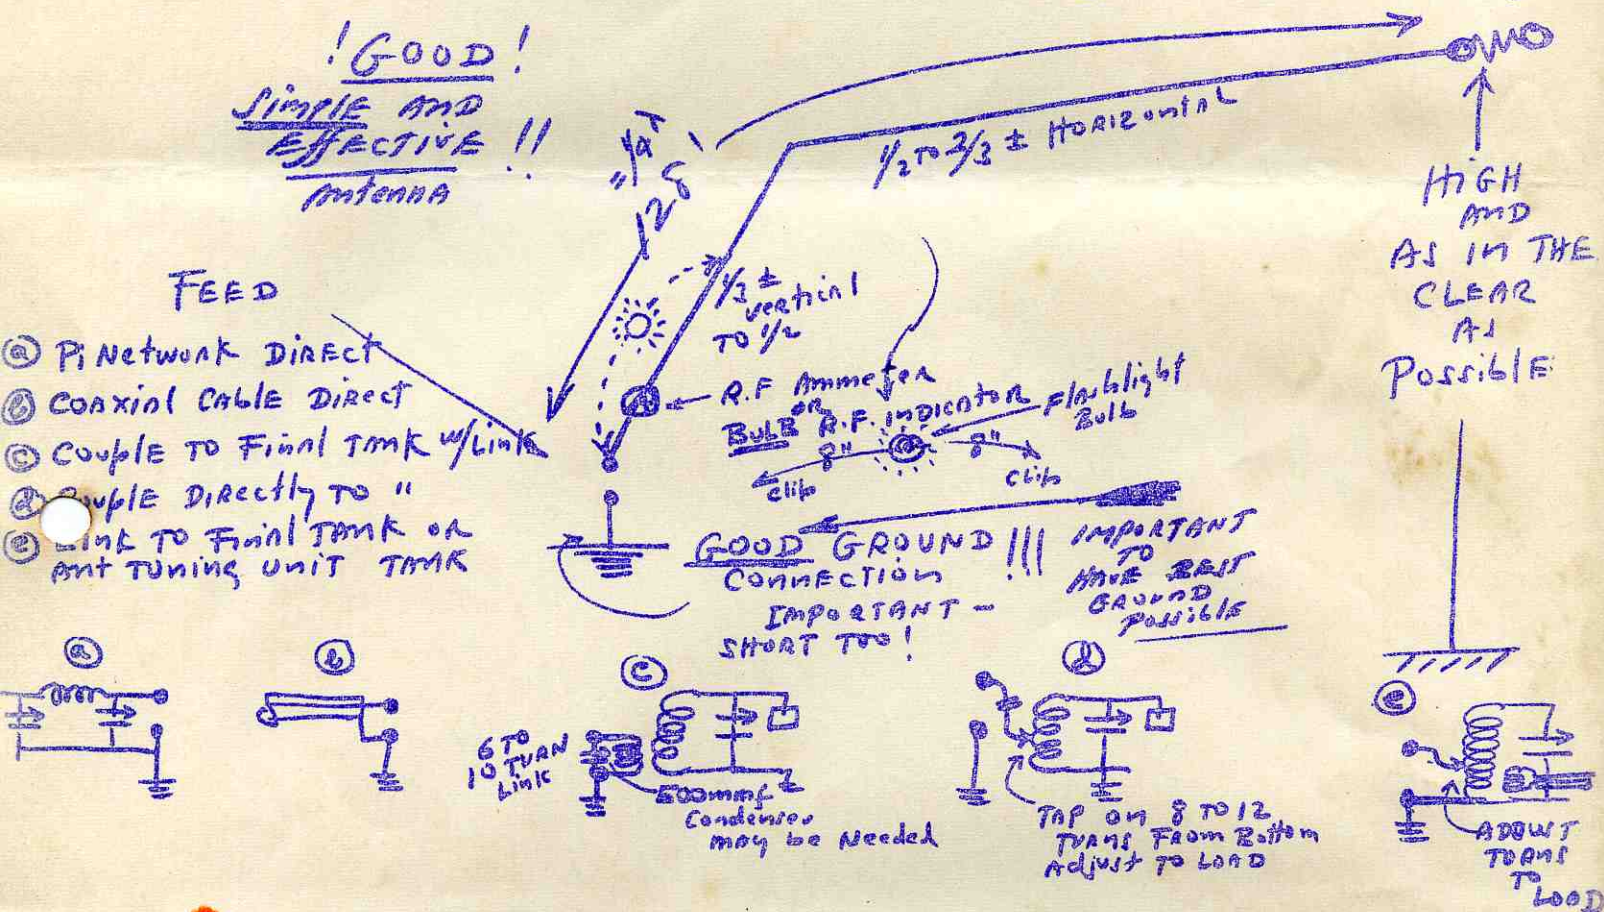 ! GOOD !
Simple AND
EffECTIVE !!
Antenna
"A"
128'
1/2 TO 2/3 ± HORIZONTAL
HIGH
AND
AS IN THE
CLEAR
AS
Possible
1/3 ±
vertical
TO 1/2
FEED
ⓐ Pi Network DIRECT
ⓑ COAXIAL CABLE DIRECT
ⓒ COUPLE TO FINAL TANK w/LINK
ⓓ Couple DIRECTLY TO "
ⓔ LINK TO FINAL TANK OR
ANT TUNING UNIT TANK
R.F Ammeter
OR
BULB R.F. INDICATOR
Flashlight
Bulb
8"
8"
clip
clip
GOOD GROUND !!!
CONNECTION
IMPORTANT -
SHORT TOO!
IMPORTANT
TO
HAVE BEST
GROUND
possible
ⓐ
ⓑ
ⓒ
6 TO
10 TURN
LINK
500mmf
Condenser
may be Needed
ⓓ
TAP ON 8 TO 12
TURNS FROM BOTTOM
Adjust TO LOAD
ⓔ
ADJUST
TURNS
TO
LOAD